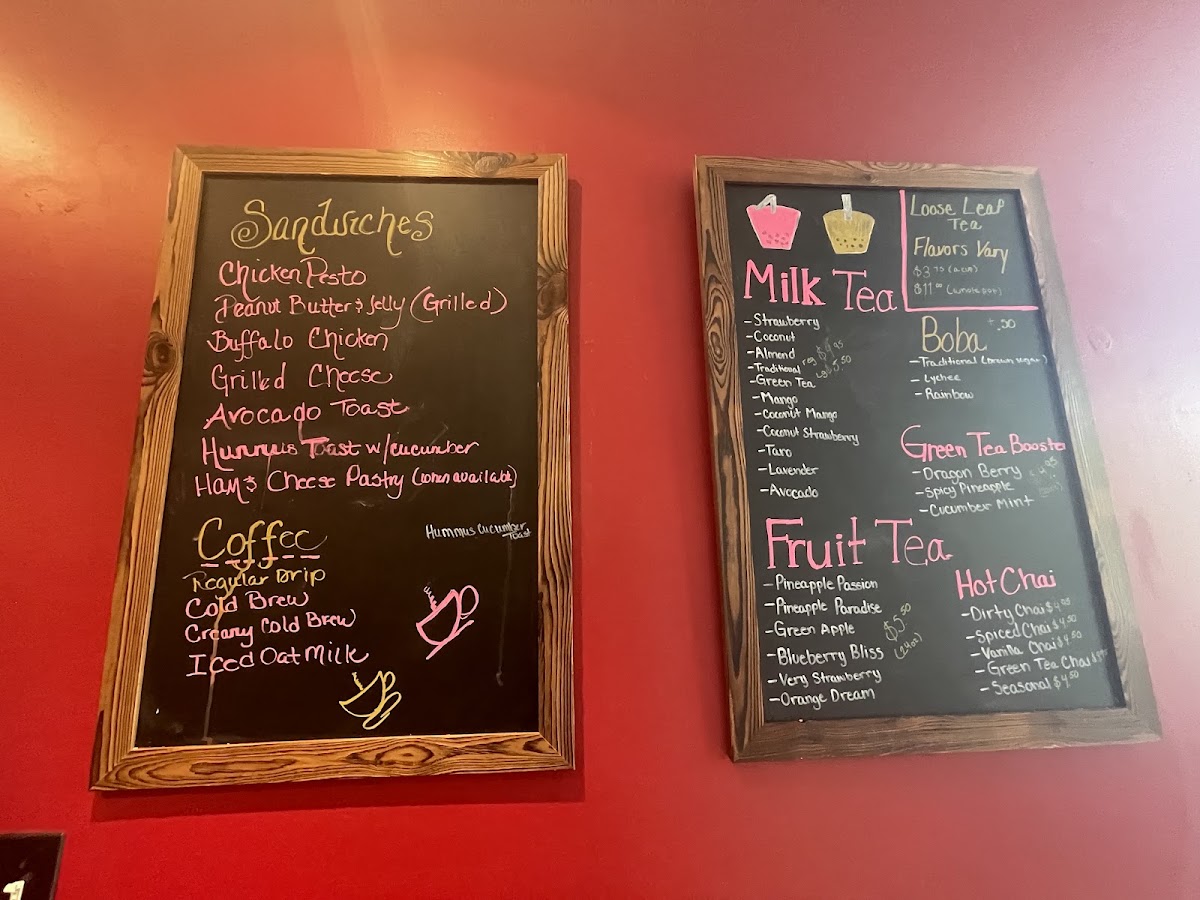 Sandwiches
Chicken Pesto
Peanut Butter & Jelly (Grilled)
Buffalo Chicken
Grilled Cheese
Avocado Toast
Hummus Toast w/cucumber
Ham & Cheese Pastry (when available)
Coffee
Regular Drip
Cold Brew
Creamy Cold Brew
Iced Oat Milk
Hummus Cucumber
Toast
Milk Tea
- Strawberry
- Coconut
- Almond
- Traditional
- Green Tea
- Mango
- Coconut Mango
- Coconut Strawberry
- Taro
- Lavender
- Avocado
reg $4.95
lg $5.50
Loose Leaf
Tea
Flavors Vary
$3.75 (a cup)
$11.00 (whole pot)
Boba +.50
- Traditional (brown sugar)
- Lychee
- Rainbow
Green Tea Booster
- Dragon Berry
- Spicy Pineapple
- Cucumber Mint
Fruit Tea
- Pineapple Passion
- Pineapple Paradise
- Green Apple
- Blueberry Bliss
- Very Strawberry
- Orange Dream
$5.50
(24oz)
Hot Chai
- Dirty Chai $4.95
- Spiced Chai $4.50
- Vanilla Chai $4.50
- Green Tea Chai
- Seasonal $4.50
1